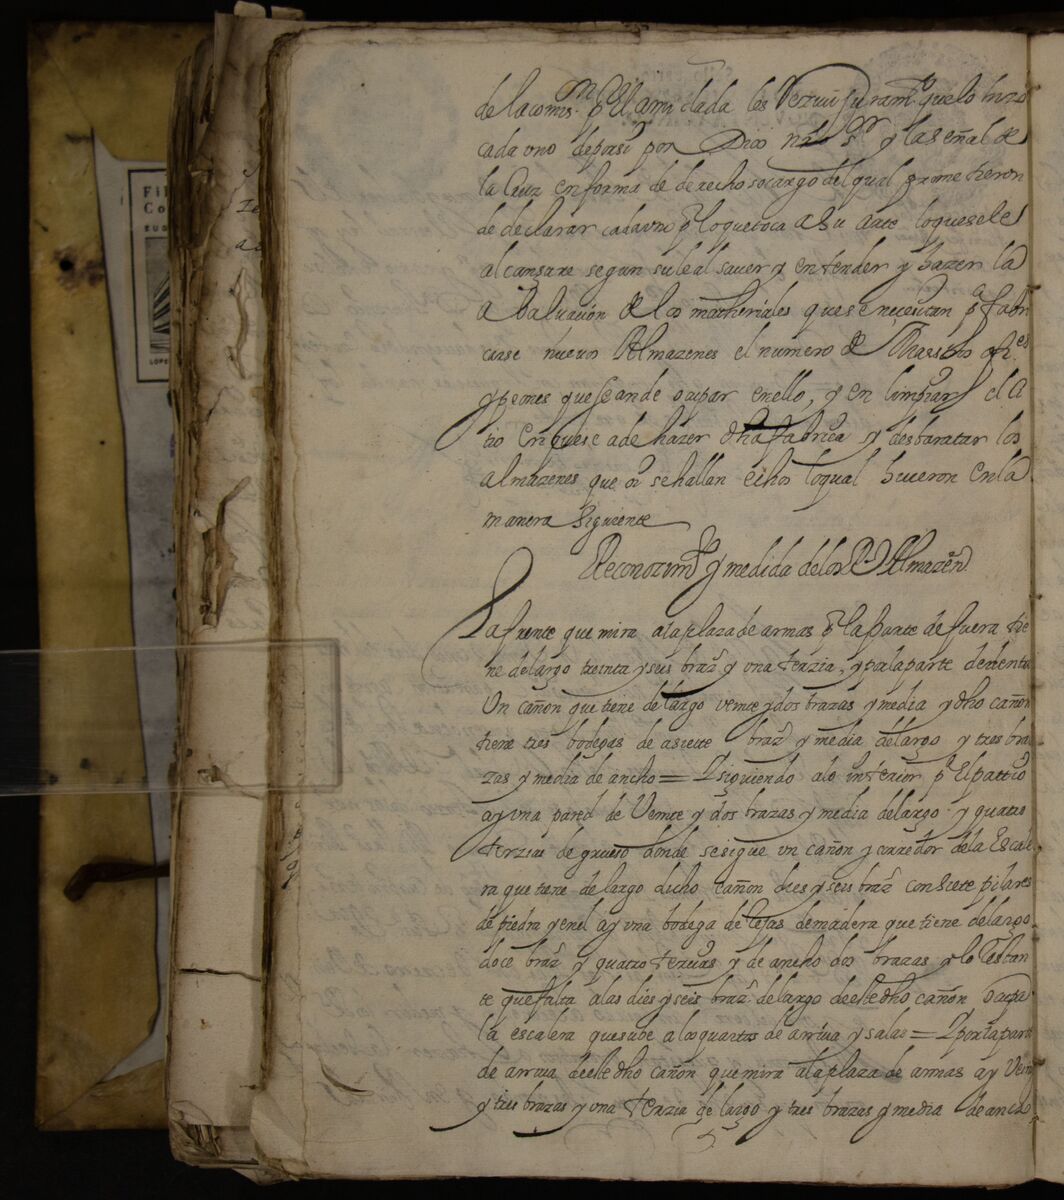 de la comisn. pr. El ami dada les Rezivi Juramto. que lo hizo
cada uno de por si por Dios nro Sr. y la señal de
la Cruz en forma de derecho so cargo del qual prometieron
de declarar cada uno pr. lo que toca a su arte lo que se les
alcansare segun su leal saver y entender y hazer la
abaluacion de los matheriales que se necesitan pa. fabri
carse nuevos Almazenes el numero de Maestros ofies.
y peones que se an de ocupar en ello, y en limpiar el si
tio en que se a de hazer dha fabrica y desbaratar los
almazenes que oi se hallan echos lo qual hizieron en la
manera siguiente
Reconozimto. y medida de los Rs. Almazens.
La frente que mira a la plaza de armas pr. la parte de fuera tie
ne de largo treinta y seis brazs. y una terzia, y por la parte de dentro
Un cañon que tiene de largo veinte y dos brazas y media y dho cañon
tiene tres bodegas de aseite braza y media de largo y tres bra
zas y media de ancho = I siguiendo a lo interior pr. El pattio
ay una pared de Veinte y dos brazas y media de largo y quatro
terzias de grueso donde se sigue un cañon y corredor de la Escale
ra que tiene de largo dicho cañon dies y seis brazs. con siete pilares
de piedra y en el ay una bodega de cajas de madera que tiene de largo
doce brazs. y quatro terzias y de ancho dos brazas y lo restan
te que falta a las dies y seis brazs. de largo de este dho cañon ocupa
la escalera que sube a los quartos de arriva y salas = I por la parte
de arriva de este dho cañon que mira a la plaza de armas ay Veinte
y tres brazas y una terzia de largo y tres brazas y media de ancho